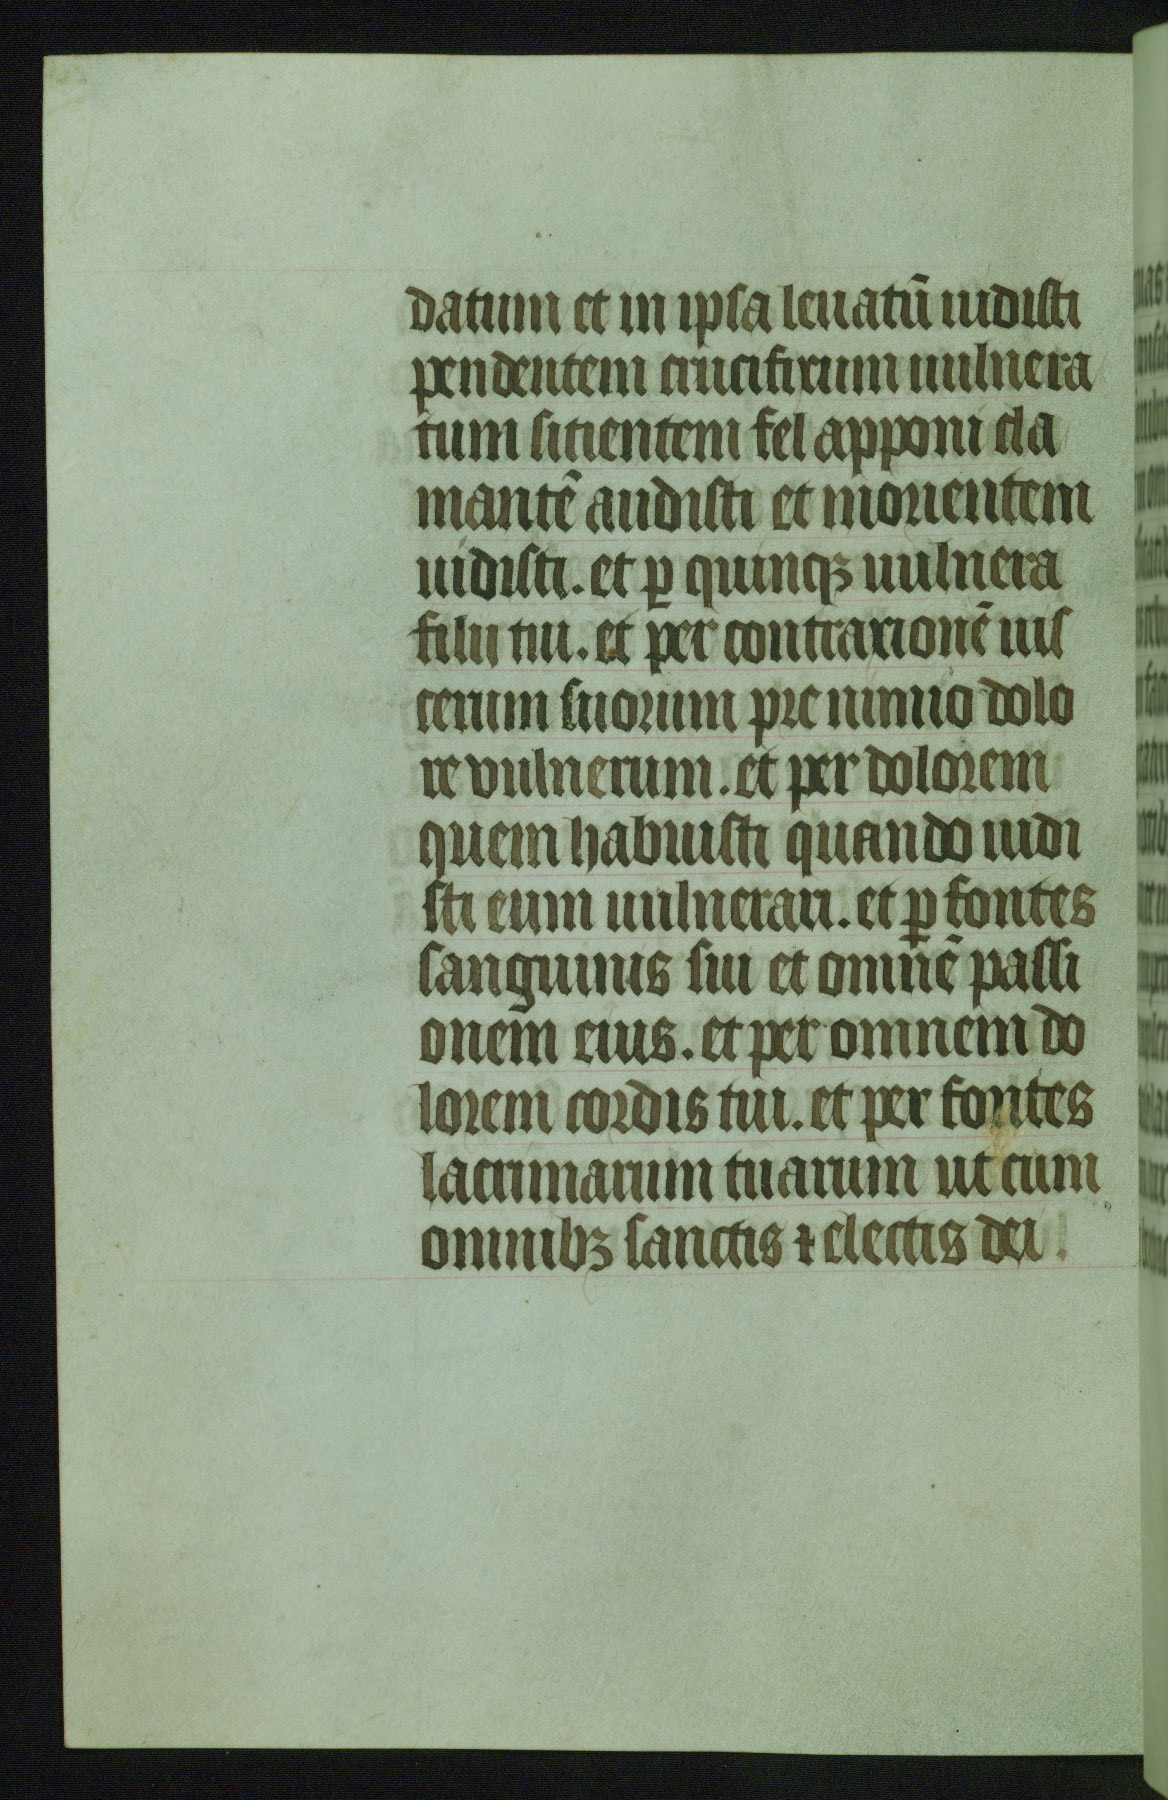 datum et in ipsa leuatū uidisti
pendentem crucifixum uulnera
tum sitientem fel apponi cla
mantē audisti et morientem
uidisti. et ꝑ quinqꝫ uulnera
filij tui. et per contraxionē uis
cerum suorum pre nimio dolo
re vulnerum. et per dolorem
quem habuisti quando uidi
sti eum uulnerari. et ꝑ fontes
sanguinis sui et omnē passi
onem eius. et per omnem do
lorem cordis tui. et per fontes
lacrimarum tuarum ut cum
omnibꝫ sanctis ⁊ electis dei.